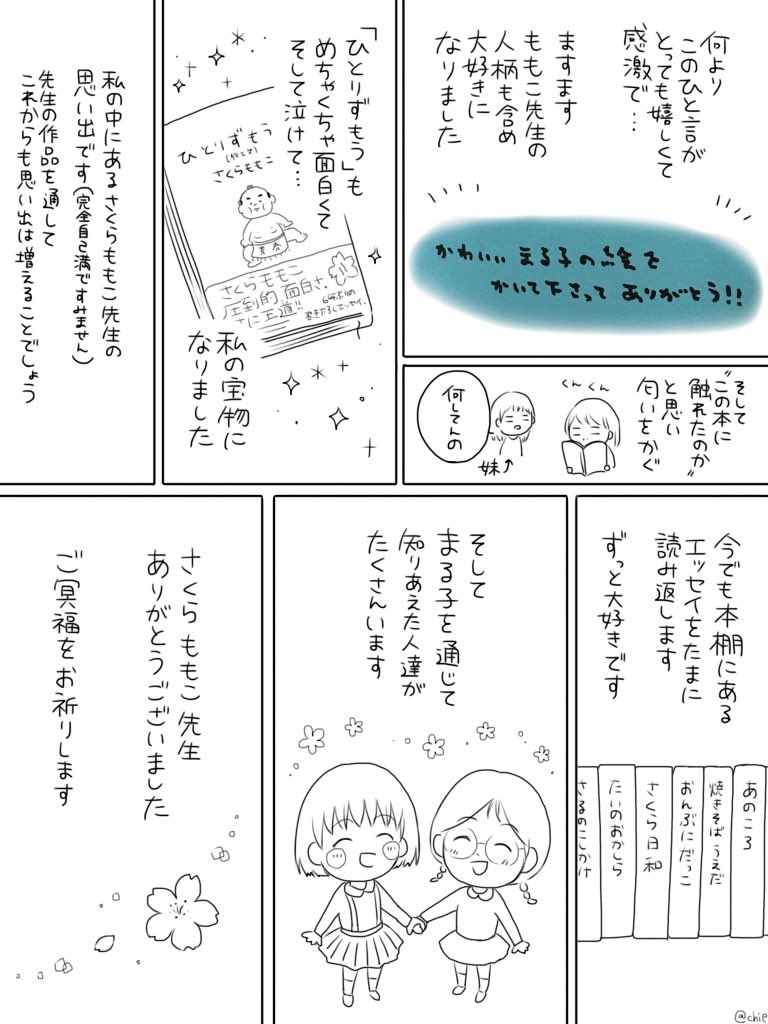 何より
このひと言が
とっても嬉しくて
感激で…
ますます
ももこ先生の
人柄も含め
大好きに
なりました
かわいい まる子の絵を
かいて下さって ありがとう!!
そして
"この本に
触れたのか"
と思い
匂いをかぐ
くんくん
何してんの
妹
「ひとりずもう」も
めちゃくちゃ面白くて
そして泣けて…
ひとりずもう
さくらももこ
青春
さくらももこ
圧倒的面白さ。
さに王道!!
6年ぶりの
書き下ろしエッセイ。
私の宝物に
なりました
私の中にあるさくらももこ先生の
思い出です(完全自己満ですみません)
先生の作品を通して
これからも思い出は増えることでしょう
今でも本棚にある
エッセイをたまに
読み返します
ずっと大好きです
あのころ
焼きそばうえだ
おんぶにだっこ
さくら日和
たいのおかしら
さるのこしかけ
そして
まる子を通じて
知りあえた人達が
たくさんいます
さくらももこ先生
ありがとうございました
ご冥福をお祈りします
@chie